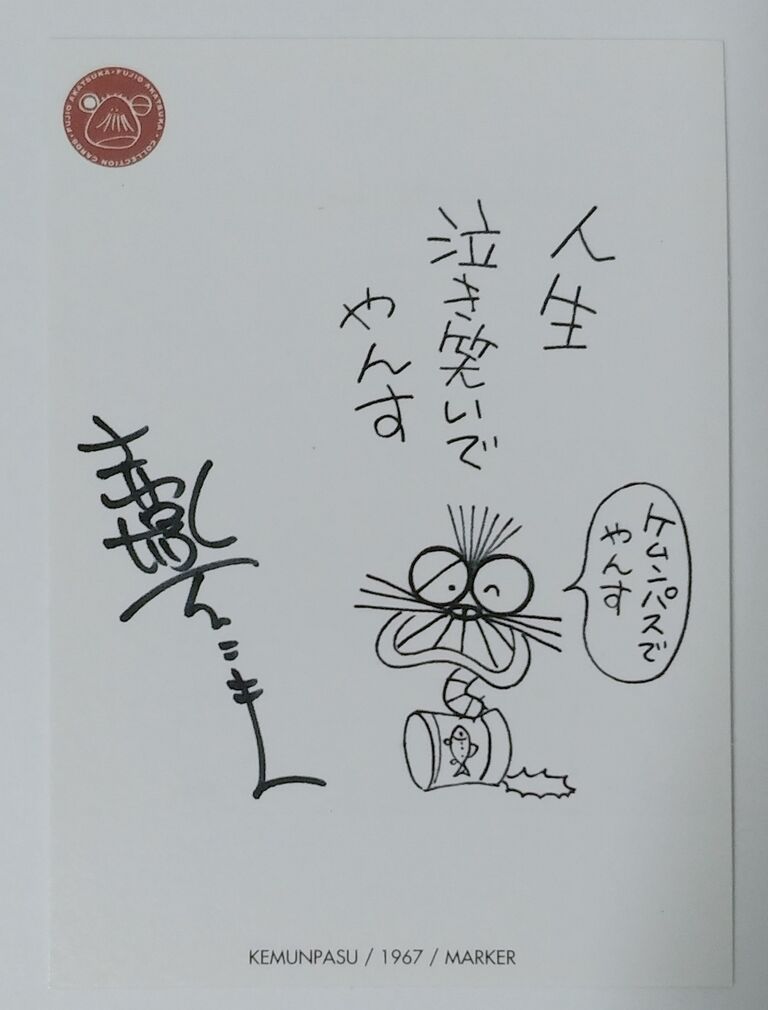 FUJIO AKATSUKA・FUJIO AKATSUKA・COLLECTION CARDS・
人生
泣き笑いで
やんす
ケムンパスで
やんす
KEMUNPASU / 1967 / MARKER